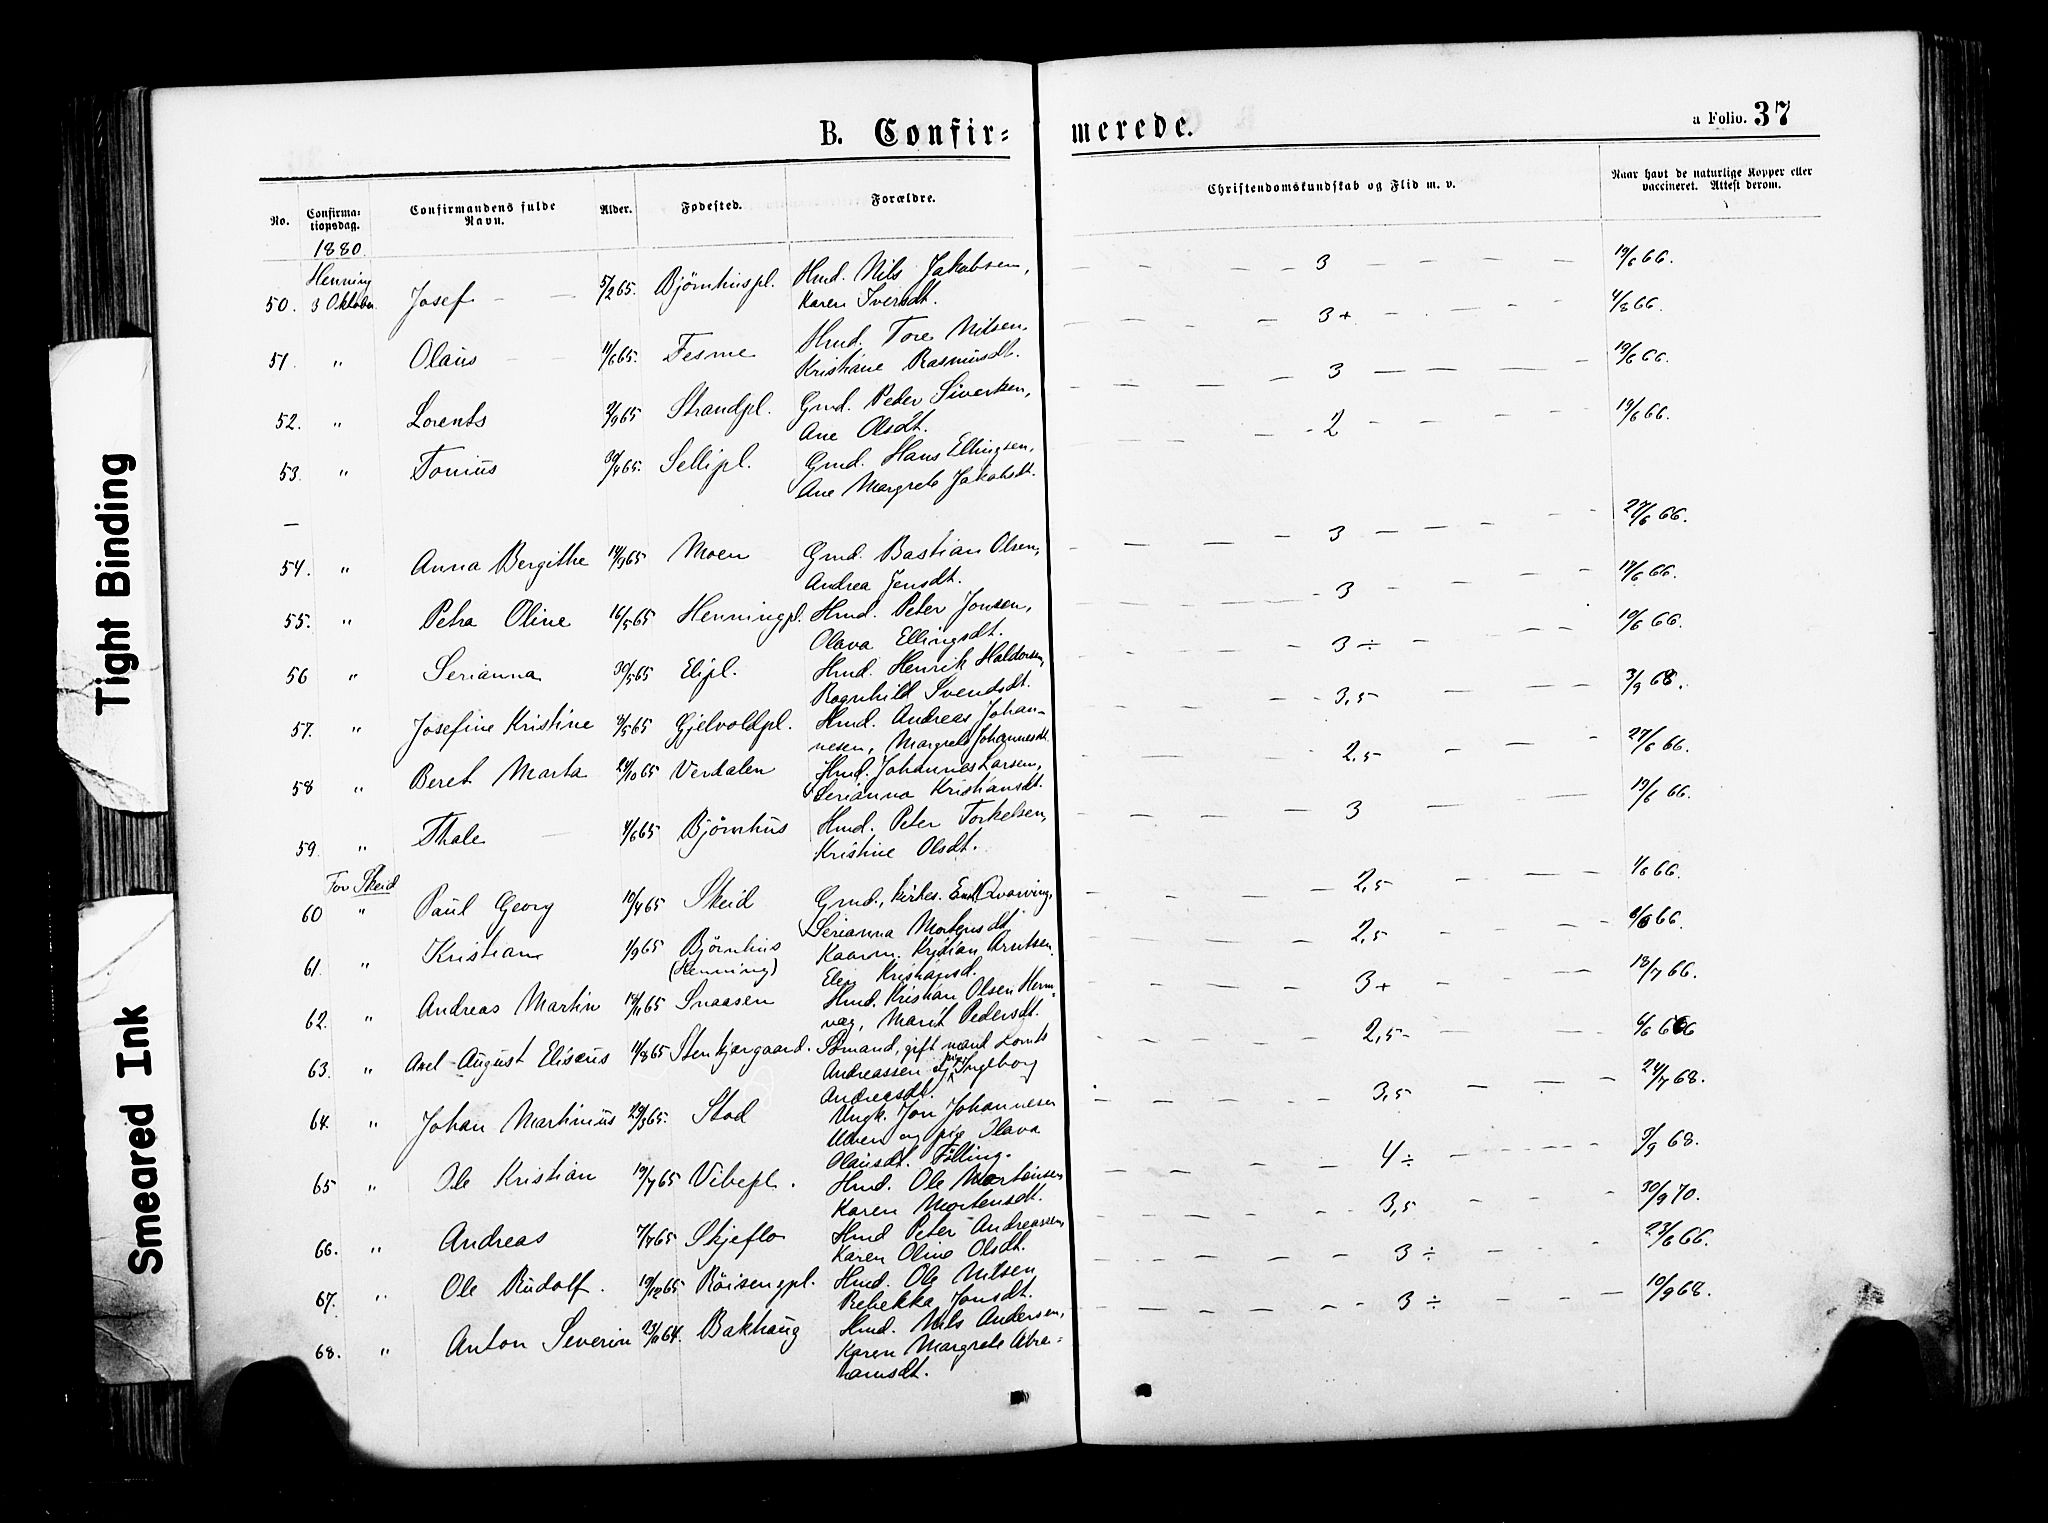 B. Confir= merede. a Folio. 37
No. Confirma-tionsdag. Confirmandens fulde Navn. Alder. Fødested. Forældre. Christendomskundskab og Flid m. v. Naar havt de naturlige Kopper eller vaccineret. Attest derom.
1880.
Henning
50. 3 Oktober Josef 5/2 65. Bjørnhuspl. Hmd. Nils Jakobsen, 3 19/6 66.
Karen Iversdt.
51. " Olaus 11/6 65. Fesme Hmd. Tore Nilsen, 3+ 4/8 66.
Kristiane Rasmusdt.
52. " Lorents 2/9 65 Strandpl. Gmd. Peter Siversen, 3 19/6 66.
Ane Olsdt.
53. " Tonius 30/4 65. Sellipl. Gmd. Hans Ellingsen, 2 19/6 66.
Ane Margrete Jakobsdt.
54. " Anna Bergithe 14/9 65 Moen Gmd. Bastian Olsen, 3 27/6 66.
Andrea Jensdt.
55. " Petra Oline 16/5 65 Henningpl. Hmd. Peter Jonsen, 3 19/6 66.
Olava Ellingsdt.
56 " Serianna 30/5 65 Elipl. Hmd. Henrik Haldorsen, 3÷ 19/6 66.
Ragnhild Svendsdt.
57. " Josefine Kristine 8/5 65 Gjelvoldpl. Hmd. Andreas Johan- 3,5 3/9 68.
nesen, Margrete Johannesdt.
58 " Beret Marta 24/10 65 Verdalen Hmd. Johannes Larsen, 2,5 27/6 66.
Serianna Kristiansdt.
59. " Thale 4/6 65 Bjørnhus Hmd. Peter Torkelsen, 3 19/6 66.
Kristine Olsdt.
For Skeid
60 " Paul Georg 10/4 65 Skeid Gmd., kirkes. Qvarving, 2,5 1/6 66.
Serianna Mortensdt.
61. " Kristian 1/9 65 Bjørnhus Kaarm. Kristian Arntsen 2,5 66.
(Henning) Elen Kristiansd.
62. " Andreas Martin 65 Snaasen Hmd. Kristian Olsen Herm- 3+ 18/7 66.
væg, Marit Pedersdt.
63. " Axel August Elisæus 11/8 65 Stenkjærgaard. Sømand, gift mand Lornts 2,5 6/6 66
Andreassen og pige Ingeborg
Andreasdt.
64. " Johan Martinus 29/3 65. Stod Ungk. Jon Johannesen 3,5 24/7 68.
Uven og pige Olava
Olausdt. Følling.
65 " Ole Kristian 19/7 65 Vibepl. Hmd. Ole Mortensen 4÷ 3/9 68.
Karen Mortensdt.
66. " Andreas 7/7 65 Skjeflo Hmd Peter Andreassen, 3,5 30/9 70.
Karen Oline Olsdt.
67. " Ole Rudolf. 19/12 65 Røisengpl. Hmd. Ole Nilsen 3÷ 23/6 66.
Rebekka Jonsdt.
68. " Anton Severin 64. Bakhaug Hmd. Nils Andersen, 3÷ 10/9 68.
Karen Margrete Abra-
hamsdt.
Tight Binding
Smeared Ink